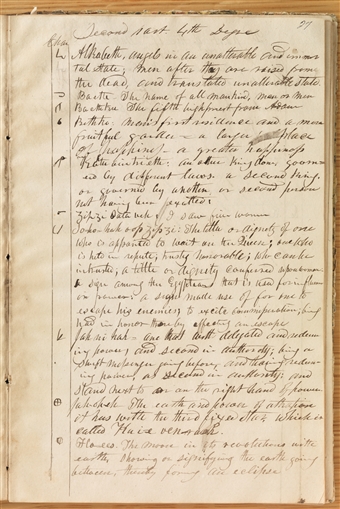 Second part 4th Degree
27
Alkabeth, angels in an unalterable and immor
tal state; men after they are raised from
the dead, and translated unalterable state.
Baeth The name of all mankind, man or men
The fifth high priest from Adam
mans first residence and a more
fruitful garden — a large place
of happiness — a greater happiness
another Kingdom govern
ed by different laws. a second king.
or governed by another or second person
not having been exalted:
Zipzi woman
The title or dignity of one
who is appointed to wait on the Queen; one who
is held in repute; trusty honorable; who can be
intrusted; a title or dignity conferred upon
sign among the Egyptians that is used for
or prisoner: a sign made use of for one to
escape his enemies; to excite commiseration; being
had in honor thereby effecting an escape
one that with delegated and redeem
ing power, and second in authority; being a
swift messenger going before, and having redeem
ing power, as second in authority: and
stand next to or on the right hand of power
The earth and power of attraction
it has with the third fixed star, which is
called Kai e ven rash.
Flo-ees. The moon in its revolutions with
earth, showing or signifying the earth going
between, thereby forming an eclipse